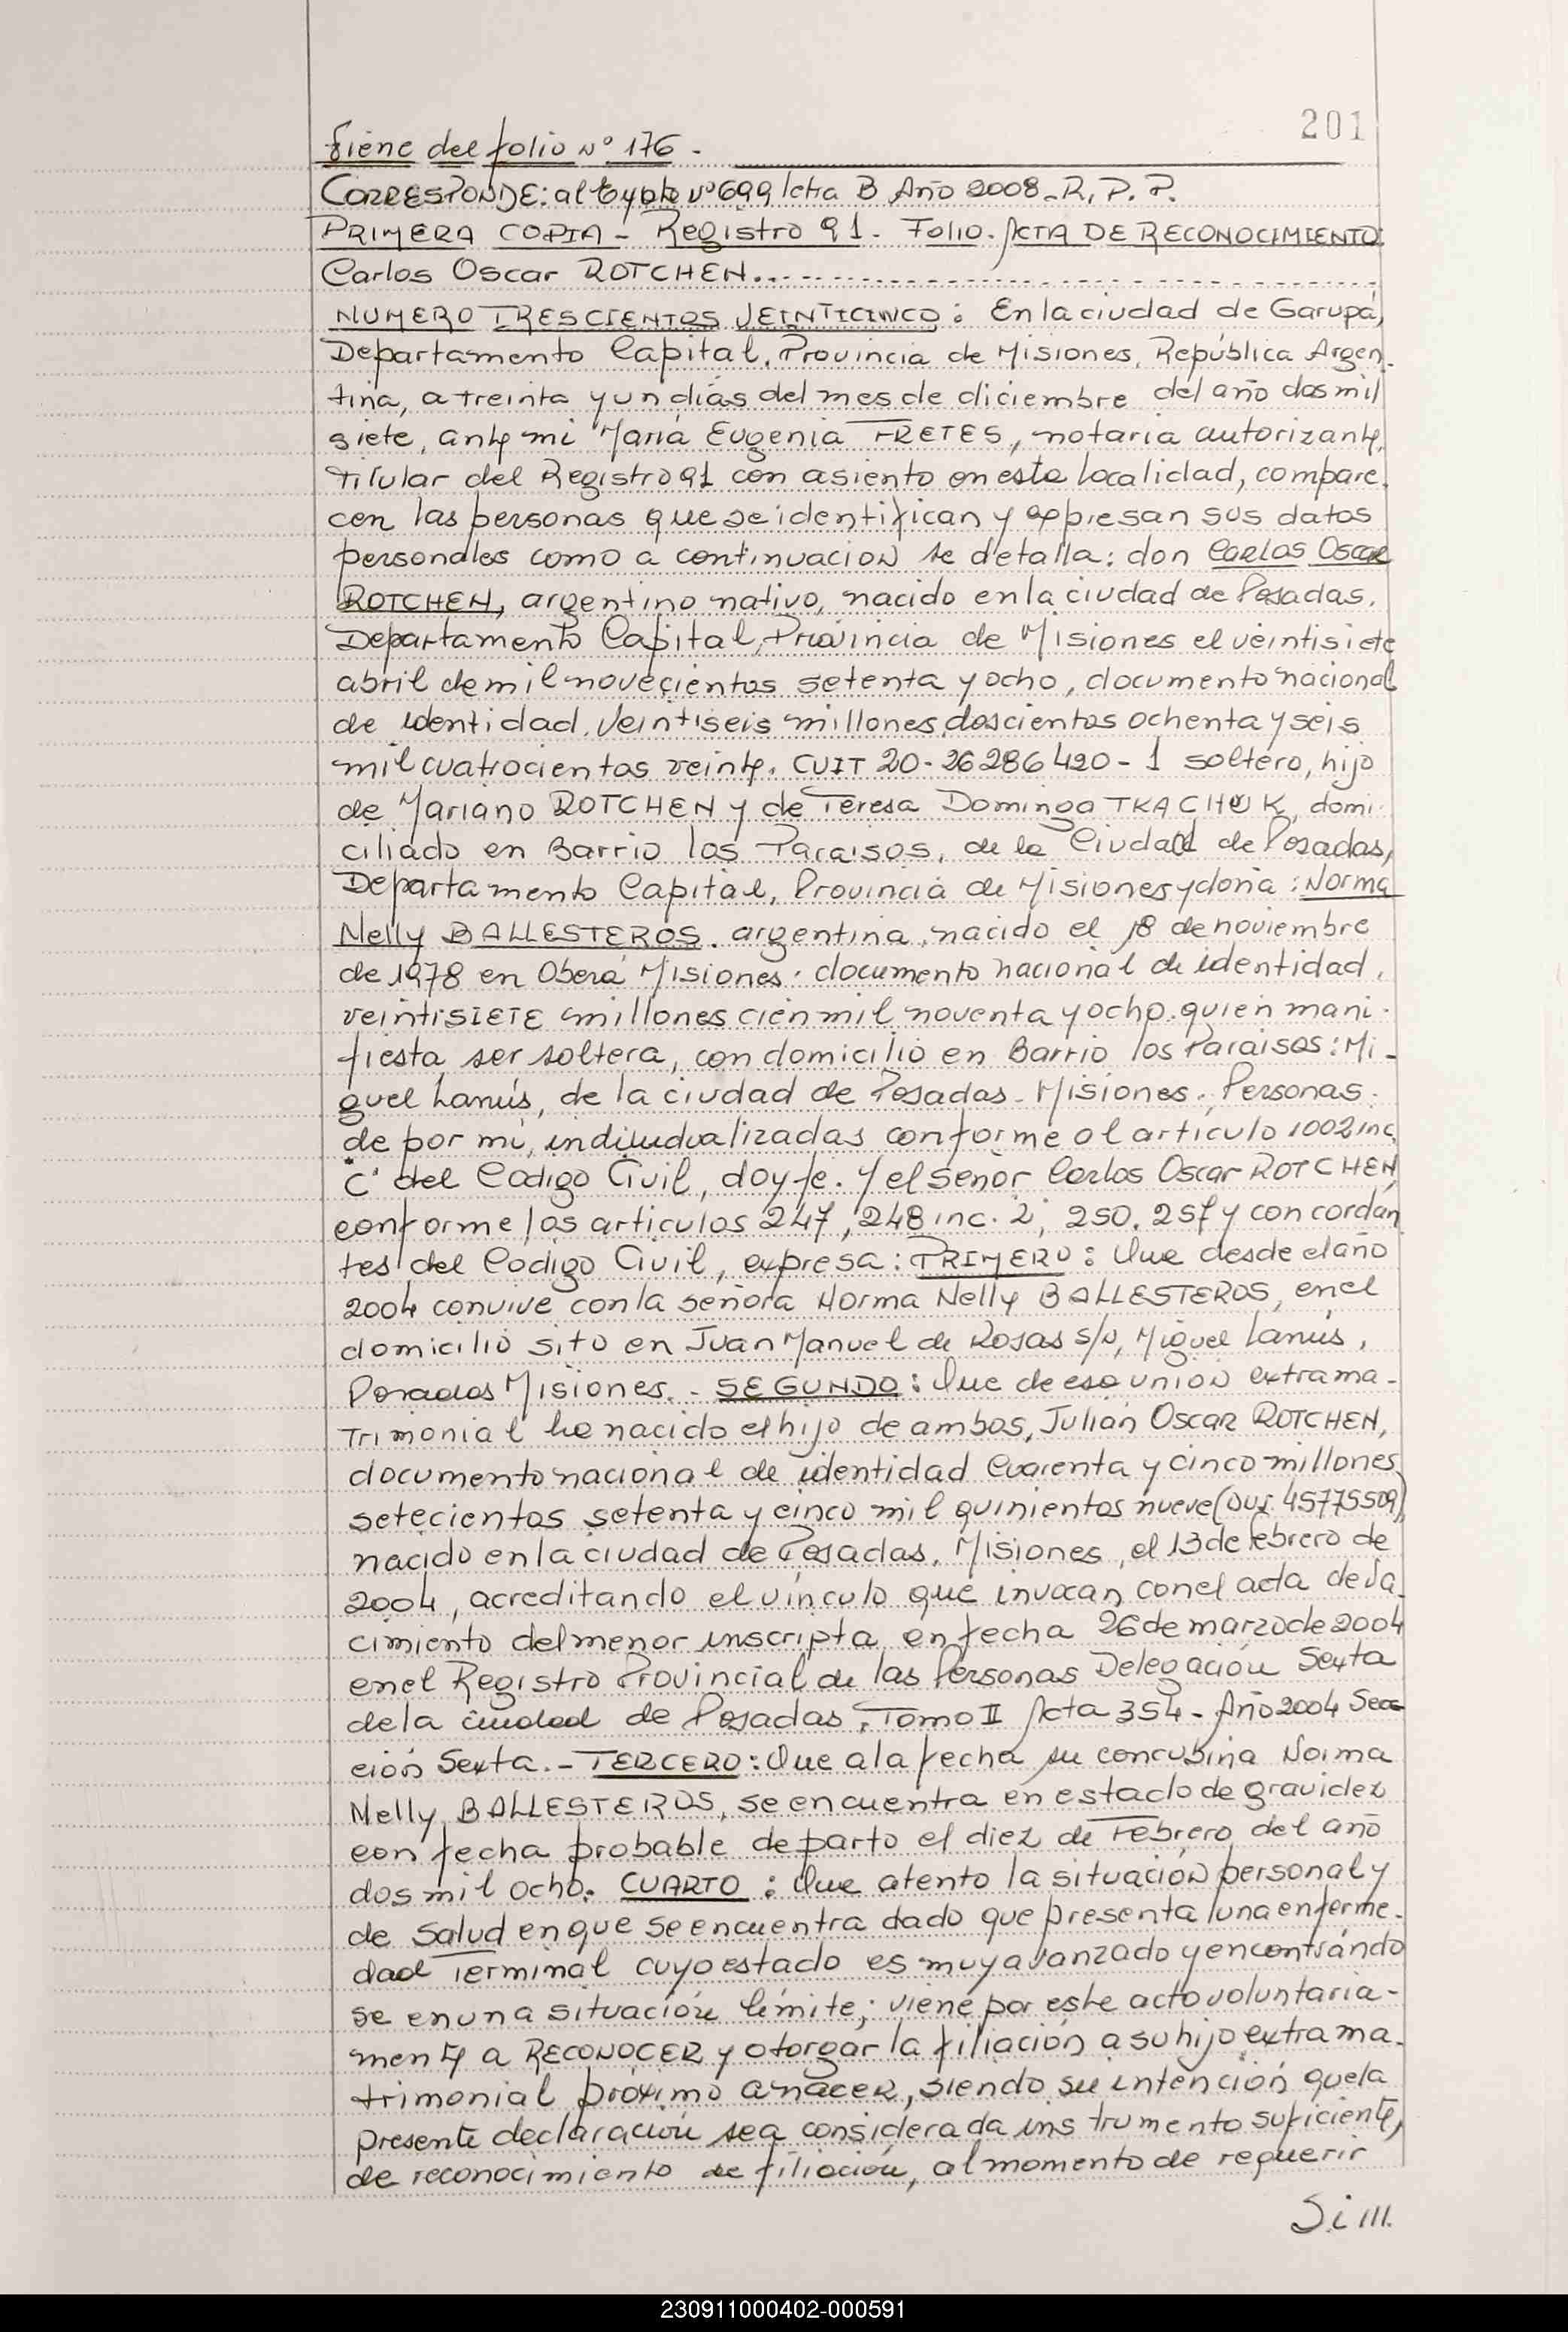 201
Viene del folio Nº 176 -
CORRESPONDE: al Expte Nº 699 letra B Año 2008 - R. P. P.
PRIMERA COPIA - Registro 91 - Folio. ACTA DE RECONOCIMIENTO:
Carlos Oscar ROTCHEN.
NUMERO TRESCIENTOS VEINTICINCO: En la ciudad de Garupá,
Departamento Capital, Provincia de Misiones, República Argen-
tina, a treinta y un días del mes de diciembre del año dos mil
siete, ante mi María Eugenia FRETES, notaria autorizante,
titular del Registro 91 con asiento en esta localidad, compare-
cen las personas que se identifican y expresan sus datos
personales como a continuacion se detalla: don Carlos Oscar
ROTCHEN, argentino nativo, nacido en la ciudad de Posadas,
Departamento Capital, Provincia de Misiones el veintisiete
abril de mil novecientos setenta y ocho, documento nacional
de identidad, veintiseis millones doscientos ochenta y seis
mil cuatrocientos veinte, CUIT 20-26286420-1 soltero, hijo
de Mariano ROTCHEN y de Teresa Dominga TKACHUK, domi-
ciliado en Barrio los Paraisos, de la Ciudad de Posadas,
Departamento Capital, Provincia de Misiones y doña: Norma
Nelly BALLESTEROS, argentina, nacido el 18 de noviembre
de 1978 en Oberá Misiones, documento nacional de identidad,
veintiSIETE millones cien mil noventa y ocho, quien mani-
fiesta ser soltera, con domicilio en Barrio los Paraisos: Mi-
guel Lanús, de la ciudad de Posadas - Misiones. Personas
de por mi, individualizadas conforme al articulo 1002 inc
"C" del Codigo Civil, doy fe. Y el señor Carlos Oscar ROTCHEN,
conforme los articulos 247, 248 inc. 2, 250, 257 y concordan
tes del Codigo Civil, expresa: PRIMERO: Que desde el año
2004 convive con la señora Norma Nelly BALLESTEROS, en el
domicilio sito en Juan Manuel de Rosas S/N, Miguel Lanús,
Posadas Misiones. - SEGUNDO: Que de esa unión extrama-
trimonial ha nacido el hijo de ambos, Julián Oscar ROTCHEN,
documento nacional de identidad Cuarenta y cinco millones
setecientos setenta y cinco mil quinientos nueve (DNI 45775509)
nacido en la ciudad de Posadas, Misiones, el 13 de febrero de
2004, acreditando el vínculo que invocan con el acta de Na-
cimiento del menor inscripta en fecha 26 de marzo de 2004
en el Registro Provincial de las Personas Delegación Sexta
de la ciudad de Posadas, Tomo II Acta 354 - Año 2004 Sec
ción Sexta. - TERCERO: Que a la fecha su concubina Norma
Nelly BALLESTEROS, se encuentra en estado de gravidez
con fecha probable de parto el diez de Febrero del año
dos mil ocho. CUARTO: Que atento la situación personal y
de Salud en que se encuentra dado que presenta una enferme-
dad Terminal cuyo estado es muy avanzado y encontrándo
se en una situación límite; viene por este acto voluntaria-
mente a RECONOCER y otorgar la filiación a su hijo extrama-
trimonial próximo a nacer, siendo su intención que la
presente declaración sea considerada instrumento suficiente,
de reconocimiento de filiación, al momento de requerir
Si///.
230911000402-000591